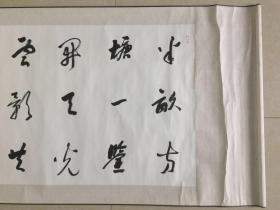 半畝方
塘一鑒
開天光
雲影共